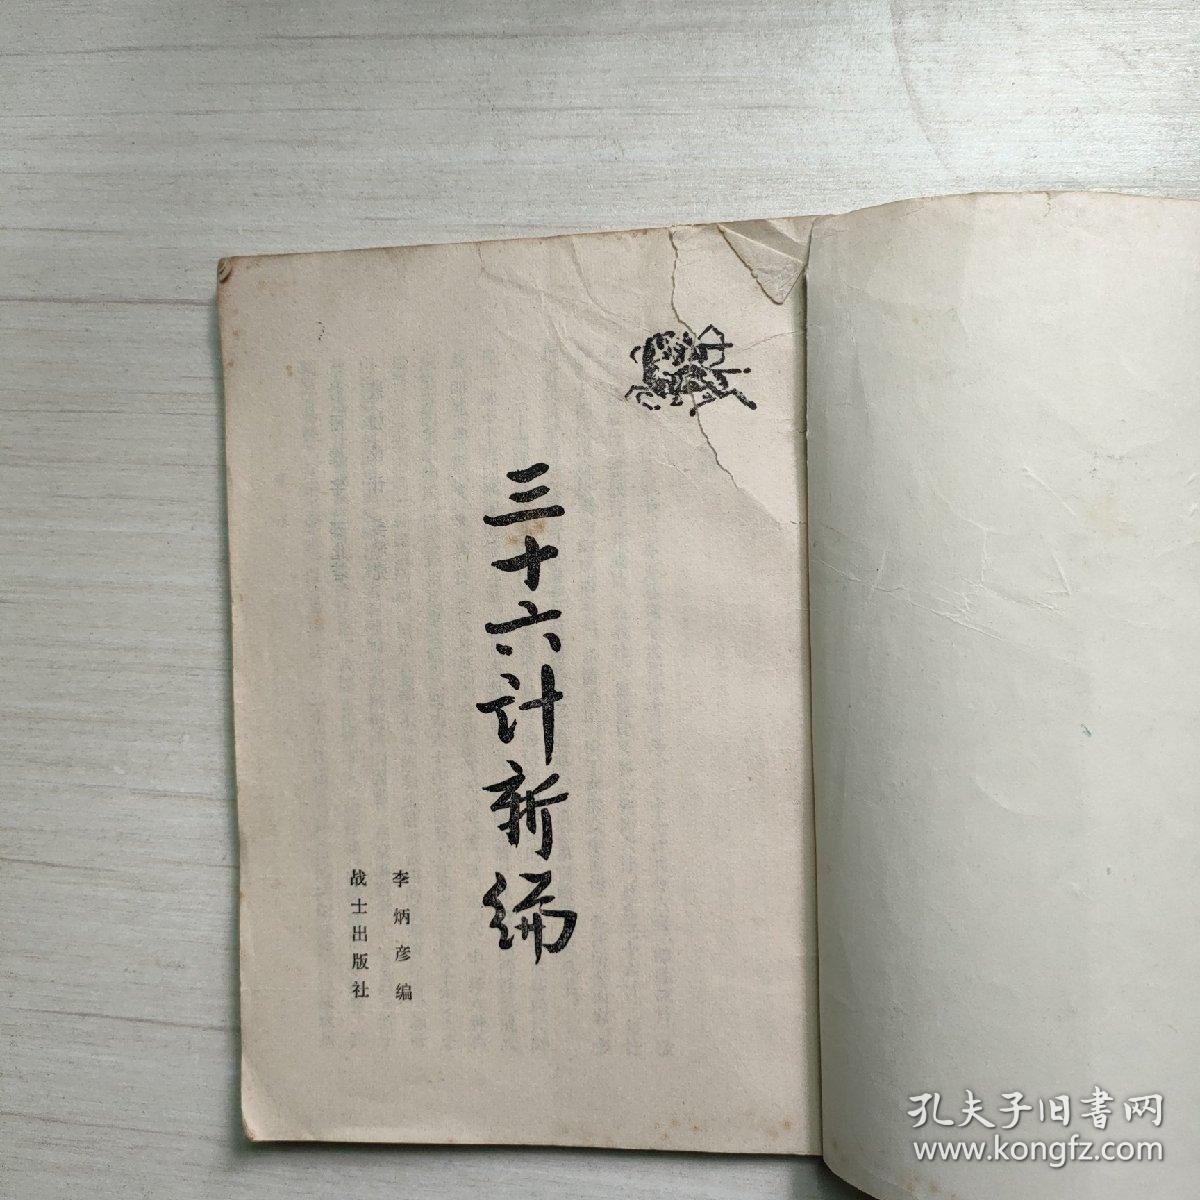 三十六计新编
李炳彦编
战士出版社
孔夫子旧書网
www.kongfz.com